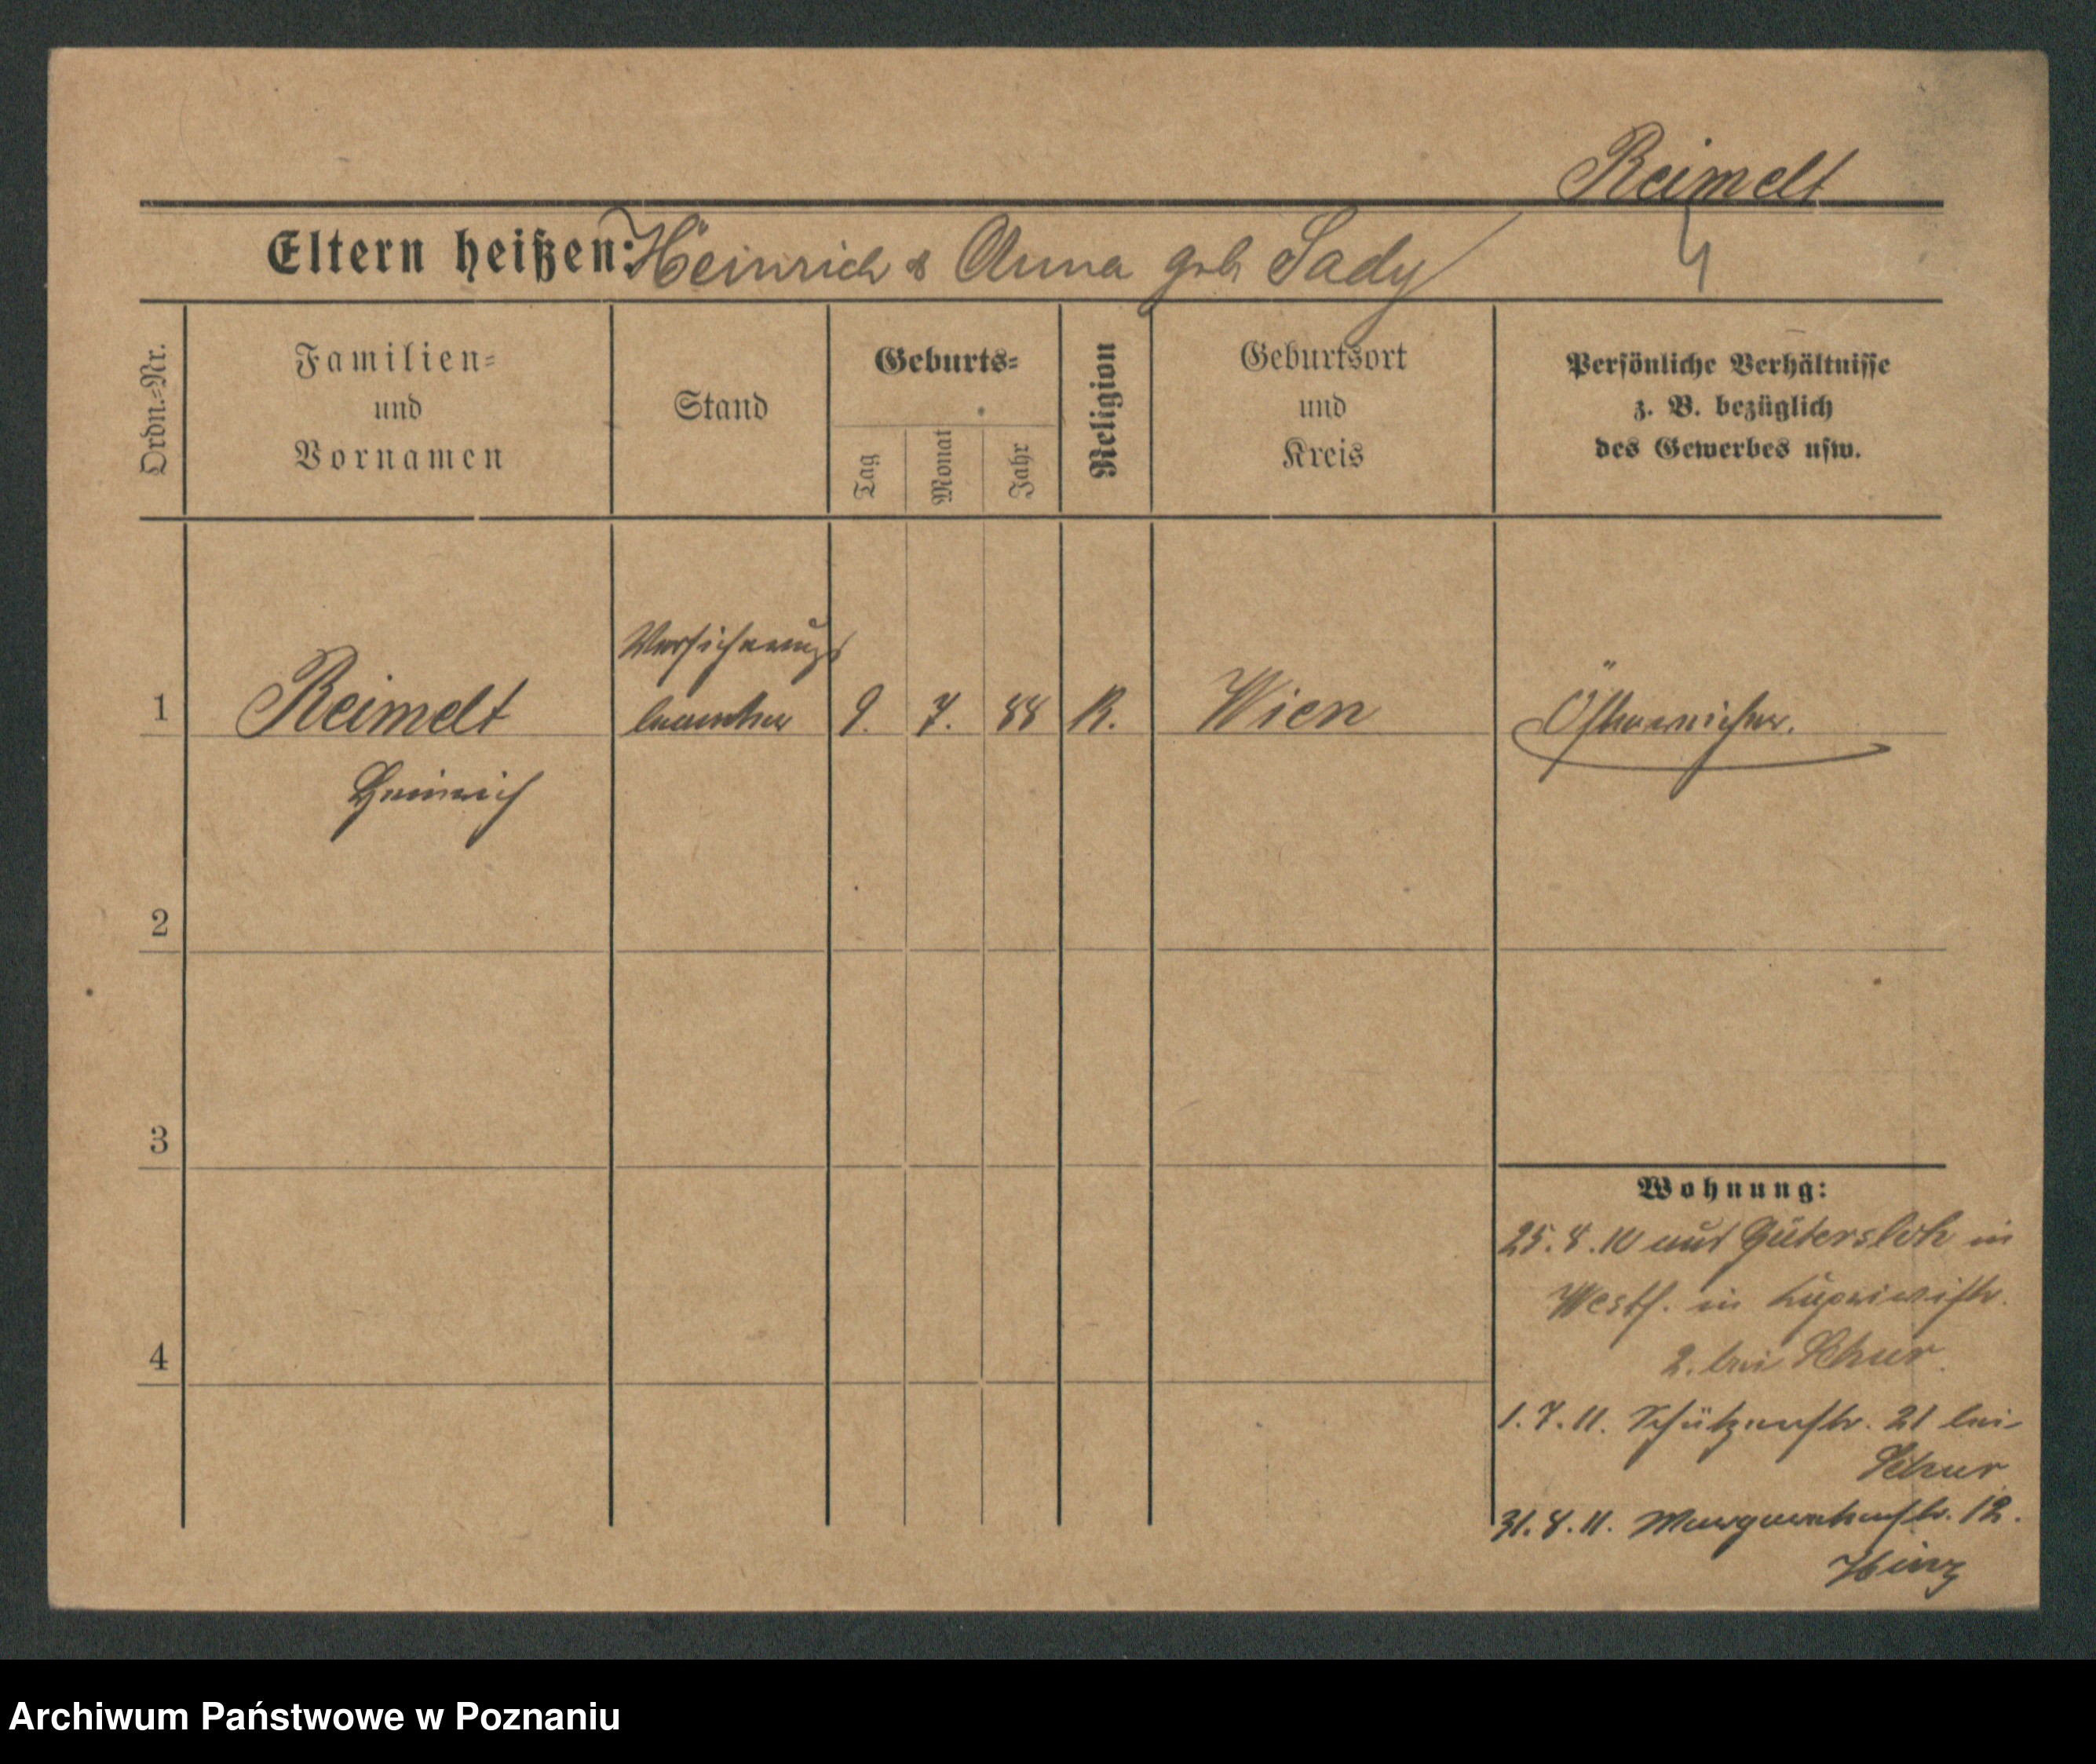 Reimelt
4
Eltern heißen: Heinrich & Anna geb Sady
Ordn.-Nr.
Familien-
und
Vornamen
Stand
Geburts-
Tag
Monat
Jahr
Religion
Geburtsort
und
Kreis
Persönliche Verhältnisse
z. B. bezüglich
des Gewerbes usw.
Versicherungs
1 Reimelt beamter 9. 7. 88 K. Wien Österreicher.
Heinrich
2
3
4
Wohnung:
25.8.10 aus Gütersloh in
Westf. in Caprivistr.
2. bei Schur
1.7.11. Schützenstr. 21 bei
Schur
31.8.11. Margaretenstr. 12.
Hinz
Archiwum Państwowe w Poznaniu